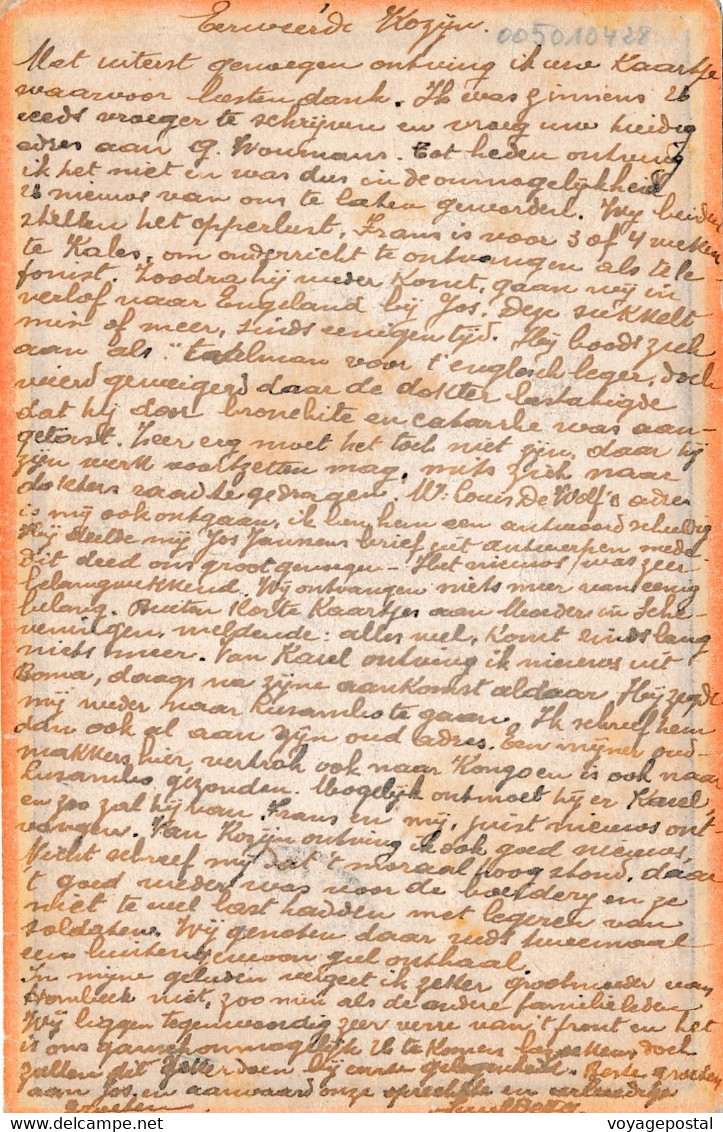 Eerweerde Kozijn.
005010428
Met uiterst genoegen ontving ik uw Kaartje
waarvoor besten dank. Ik was zinnens U
reeds vroeger te schrijven en vroeg uw huidig
adres aan G. Woumans. Tot heden ontving
ik het niet en was dus in de onmogelijkheid
U nieuws van ons te laten geworden. Wij beiden
stellen het opperbest, Frans is voor 3 of 4 weken
te Kales, om onderricht te ontvangen als tele
fonist. Zoodra hij weder komt, gaan wij in
verlof naar Engeland bij Jos. Deze sukkelt
min of meer, sinds eenigen tijd. Hij bood zich
aan als voor t'engelsch leger, doch
wierd geweigerd daar de dokter bestatigde
dat hij door bronchite en catarrhe was aan-
getast. Zeer erg moet het toch niet zijn, daar hij
zijn werk voortzetten mag, mits zich naar
dokters raad te gedragen. Mr Louis De Wolf's adres
is mij ook ontgaan, ik ben hem een antwoord schuldig
Hij deelde mij Jos Janssens brief uit Antwerpen mede
Dit deed ons groot genoegen - Het nieuws was zeer
belangwekkend. Wij ontvangen niets meer van eenig
belang. Buiten korte Kaartjes aan Moeder in Sche-
veningen, meldende: alles wel, komt sinds lang
niets meer. Van Karel ontving ik nieuws uit
Boma, daags na zijne aankomst aldaar. Hij zegde
mij weder naar Lusambo te gaan. Ik schreef hem
dan ook al aan zijn oud adres. Een mijner oud-
makkers hier, vertrok ook naar Kongo en is ook naar
Lusambo gezonden. Mogelijk ontmoet hij er Karel,
en zoo zal hij van Frans en mij, juist nieuws ont-
vangen. Van Kozijn ontving ik ook goed nieuws,
Nicht schreef mij dat 't moraal hoog stond, daar
't goed weder was voor de boerderij en ze
niet te veel last hadden met legeren van
soldaten. Wij genoten daar reeds tweemaal
een buitengewoon gul onthaal.
In mijne gebeden vergeet ik zeker grootmoeder van
Hombeek niet, zoo min als de andere familieleden
Wij liggen tegenwoordig zeer verre van 't front en het
is ons gansch onmogelijk U te komen bezoeken, doch
zullen dit zeker doen bij eerste gelegenheid. Beste groeten
aan Jos, en aanvaard onze oprechte en eerbiedige
groeten
©voyagepostal
delcampe.net
voyagepostal